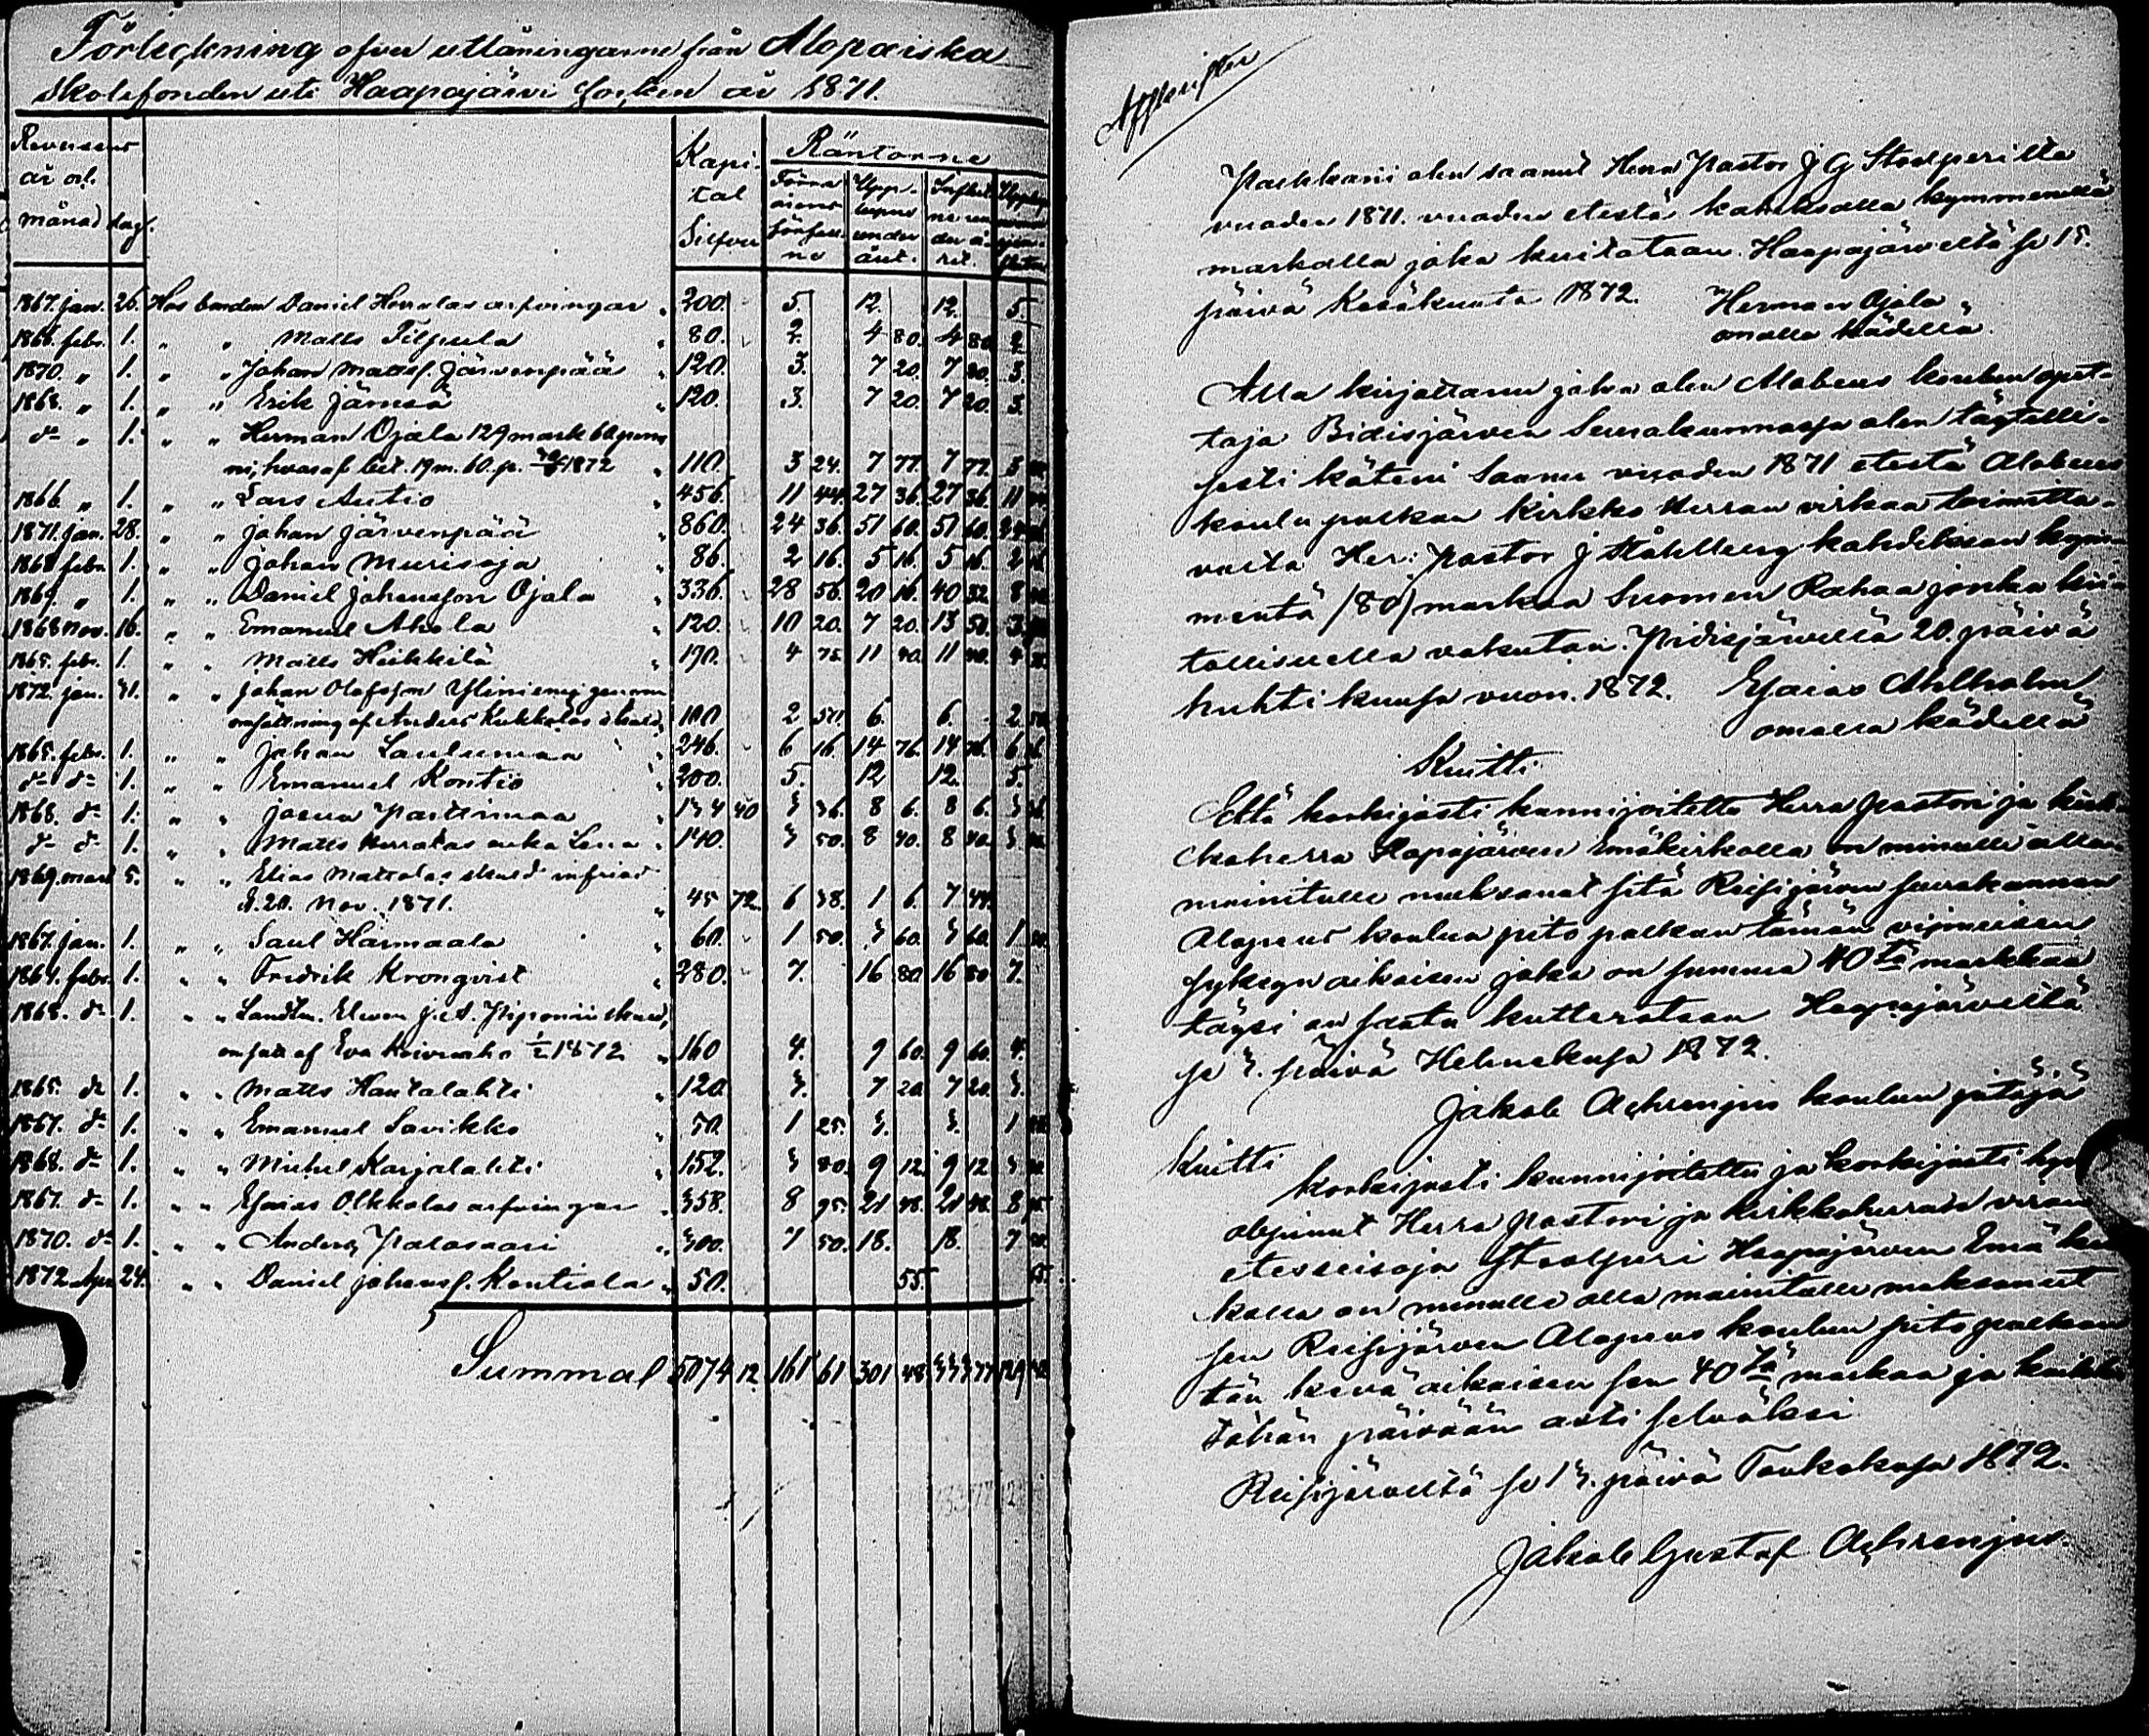 Förteckning öfver utlåningarne från Alopæiska
skolefonden uti Haapajärvi Socken år 1871.
Reversens
år och
månad dag.
Kapital Silfver
Räntorne
Förra årens förfallne
Upplupne under året.
Influtne under året.
1867. jan. 26. Hos bonden Daniel Herralas arfvingar 200. 5. 12. 12. 5.
1866. febr. 1. " " Matts Tilpula 80. 2. 4 80. 4 80 2
1870. " 1. " " Johan Mattsf. Järvenpää 120. 3. 7 20. 7 20. 3.
1868. " 1. " " Erik Jämsä 120. 3. 7 20. 7 20. 3.
d:o " 1. " " Herman Ojala 129 mark 60 penni
ni, hvaraf bet. 19 m. 60. p. 1872 110. 3 24. 7 77. 7 77. 3
1866 " 1. " " Lars Autio 456. 11 44. 27 36. 27 36. 11
1871. jan. 28. " " Johan Järvenpää 860. 24 36. 51 60. 51 60. 24
1868 febr. 1. " " Johan Murisoja 86. 2 16. 5 16. 5 16. 2
1869. " 1. " " Daniel Johansson Ojala 336. 28 56. 20 16. 40 32. 8
1868 nov. 16. " " Emanuel Ahola 120. 10 20. 7 20. 13 50. 3
1865. febr. 1. " " Matts Heikkilä 190. 4 75. 11 40. 11 40. 4
1872. jan. 31. " " Johan Olofsson Yliniemi genom
omsättning af Anders Kukkolas skuld 100 2 50. 6. 6. 2 50
1865. febr. 1. " " Johan Laulumaa 246. 6 16. 14 76. 14 76. 6
d:o d:o 1. " " Emanuel Kontio 200. 5. 12 12. 5.
1868. d:o 1. " " Josua Partimaa 134 40 3 36. 8 6. 8 6. 3
d:o d:o 1. " " Matts Herralas enka Lena 140. 3 50. 8 40. 8 40. 3
1869. mars 5. " " Elias Mattalas skuld infriad
d. 20. Nov. 1871. 45 72. 6 38. 1 6. 7 44.
1867. jan. 1. " " Saul Harmaala 60. 1 50. 3 60. 3 60. 1
1864. febr. 1. " " Fredrik Kronqvist 280. 7. 16 80. 16 80. 7.
1868. d:o 1. " " Landtm. Eleven J. A. Piponii skuld,
omsatt af Eva Koivuaho 1/2 1872 160 4. 9 60. 9 60. 4.
1865. d:o 1. " " Matts Hautalahti 120. 3. 7 20. 7 20. 3.
1867. d:o 1. " " Emanuel Savikko 50. 1 25. 3. 3. 1
1868. d:o 1. " " Michel Karjalahti 152. 3 80. 9 12. 9 12 3
1867. d:o 1. " " Esaias Olkkolas arfvingar 358. 8 95. 21 48. 21 48. 8
1870. d:o 1. " " Anders Palosaari 300. 7 50. 18. 18. 7
1872 Apr. 24. " " Daniel Johansf. Kontiola 50. 55. 55.
Summa 5074 12. 161 61 301 48 333 77 129
Afskrifter
Palkkani olen saanut Herra Pastor J G Stoolperilta
vuoden 1871. vuoden etestä kaheksalla kymmenellä
markalla joka kuitataan. Haapajärveltä se 15.
päivä Kesäkuuta 1872. Herman Ojala
omalla kädellä.
Alla kirjottanu joka olen Alobeus koulun opet-
taja Bidisjärven Seurakunnassa olen täytelli-
sesti käteeni saanu vuoden 1871 etestä Alobeus
koulu palkan Kirkko Herran virkaa toimitta-
vasta Her: Pastor J Ståhlberg kahdeksan kym-
mentä /80/ markaa Suomen Rahaa jonka kiitollisuella vakutan. Pidisjärvellä 20. päivä
huhti kuusa vuon. 1872. Esaias Ahlholm
omalla kädellä
Kuitti
Että korkijasti kunnijoitettu Herra pastori ja kirk-
koherra Hapajärven Emäkirkolla on minulle alla
mainitulle maksanut sitä Reisijärven seurakunnan
Alopeus koulun pito palkan tämän viimeisen
syksyn aikaisen joka on summa 40 tä markkaa
täysi on saatu kutterataan Haapajärveltä
se 3. päivä Helmekusa 1872.
Jakob Achrenjus koulun pitäjä
Kuitti
Korkijasti kunnijoitettu ja korkijasti
oppinut Herra pastori ja kirkkoherran viran
etesseisoja Stoolperi Haapajärven Emä kir-
kolla on minulle alla mainitulle maksanut
sen Reisijärven Alopeus koulun pito palkan
tän kevä aikaisen sen 40 tä markaa ja kaikki
tähän päivään asti selväksi
Reisijärveltä se 13. päivä Toukokusa 1872.
Jakob Gustaf Achrenjus.